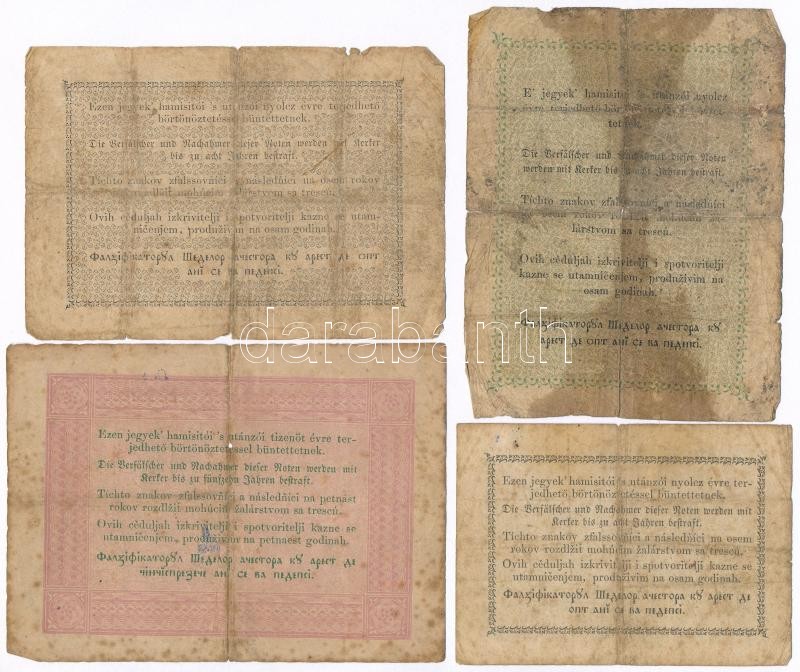 Ezen jegyek' hamisitói 's utánzói nyolcz évre terjedhető
börtönöztetéssel büntettetnek.
Die Verfälscher und Nachahmer dieser Noten werden mit Kerker
bis zu acht Jahren bestraft.
Tichto znakov zfalssovníci a následníci na osem rokov
rozdlžiť mohúcim žalárstvom sa trescú.
Ovih céduljah izkrivitelji i spotvoritelji kazne se utam-
ničenjem, produživim na osam godinah.
Фалзіфікаторꙋл Шеделор ачестора кꙋ арест де опт
анї се ва педепсі.
E' jegyek' hamisitói 's utánzói nyolcz
évre terjedhető börtönöztetéssel büntet-
tetnek.
Die Verfälscher und Nachahmer dieser Noten
werden mit Kerker bis zu acht Jahren bestraft.
Tichto znakov zfalssovníci a následníci
na osem rokov rozdlžiť mohúcim ža-
lárstvom sa trescú.
Ovih céduljah izkrivitelji i spotvoritelji
kazne se utamničenjem, produživim na
osam godinah.
Фалзіфікаторꙋл Шеделор ачестора кꙋ
арест де опт анї се ва педепсі.
darabanth
Ezen jegyek' hamisitói 's utánzói tizenöt évre ter-
jedhető börtönöztetéssel büntettetnek.
Die Verfälscher und Nachahmer dieser Noten werden mit
Kerker bis zu fünfzehn Jahren bestraft.
Tichto znakov zfalssovníci a následníci na petnást
rokov rozdlžiť mohúcim žalárstvom sa trescú.
Ovih céduljah izkrivitelji i spotvoritelji kazne se
utamničenjem, produživim na petnaest godinah.
Фалзіфікаторꙋл Шеделор ачестора кꙋ арест де
чінчіспрезече анї се ва педепсі.
Ezen jegyek' hamisitói 's utánzói nyolcz évre ter-
jedhető börtönöztetéssel büntettetnek.
Die Verfälscher und Nachahmer dieser Noten werden mit
Kerker bis zu acht Jahren bestraft.
Tichto znakov zfalssovníci a následníci na osem
rokov rozdlžiť mohúcim žalárstvom sa trescú.
Ovih céduljah izkrivitelji i spotvoritelji kazne se
utamničenjem, produživim na osam godinah.
Фалзіфікаторꙋл Шеделор ачестора кꙋ арест де
опт анї се ва педепсі.